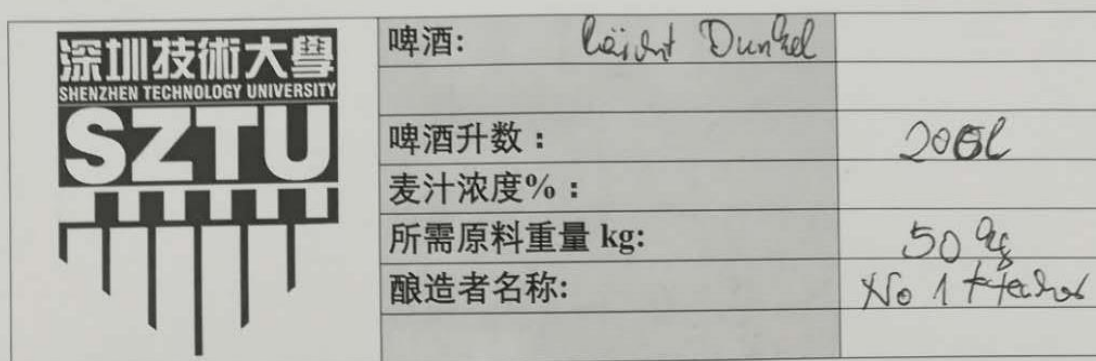 深圳技術大學
SHENZHEN TECHNOLOGY UNIVERSITY
SZTU
啤酒: Dunkel
啤酒升数：200l
麦汁浓度%：
所需原料重量 kg: 50 kg
酿造者名称: No 1